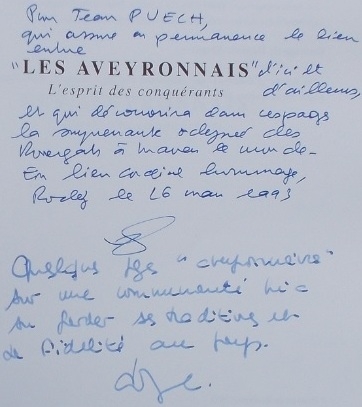 Pour Jean PUECH,
qui assure en permanence le lien
entre
"LES AVEYRONNAIS" d'ici et
d'ailleurs,
L'esprit des conquérants
et qui découvrira dans ces pages
la surprenante odyssée des
Rouergats à travers le monde -
En bien cordial hommage,
Rodez le 26 mars 1993
Quelques pages "aveyronnaises"
sur une communauté qui a
su garder ses traditions et
la fidélité au pays.